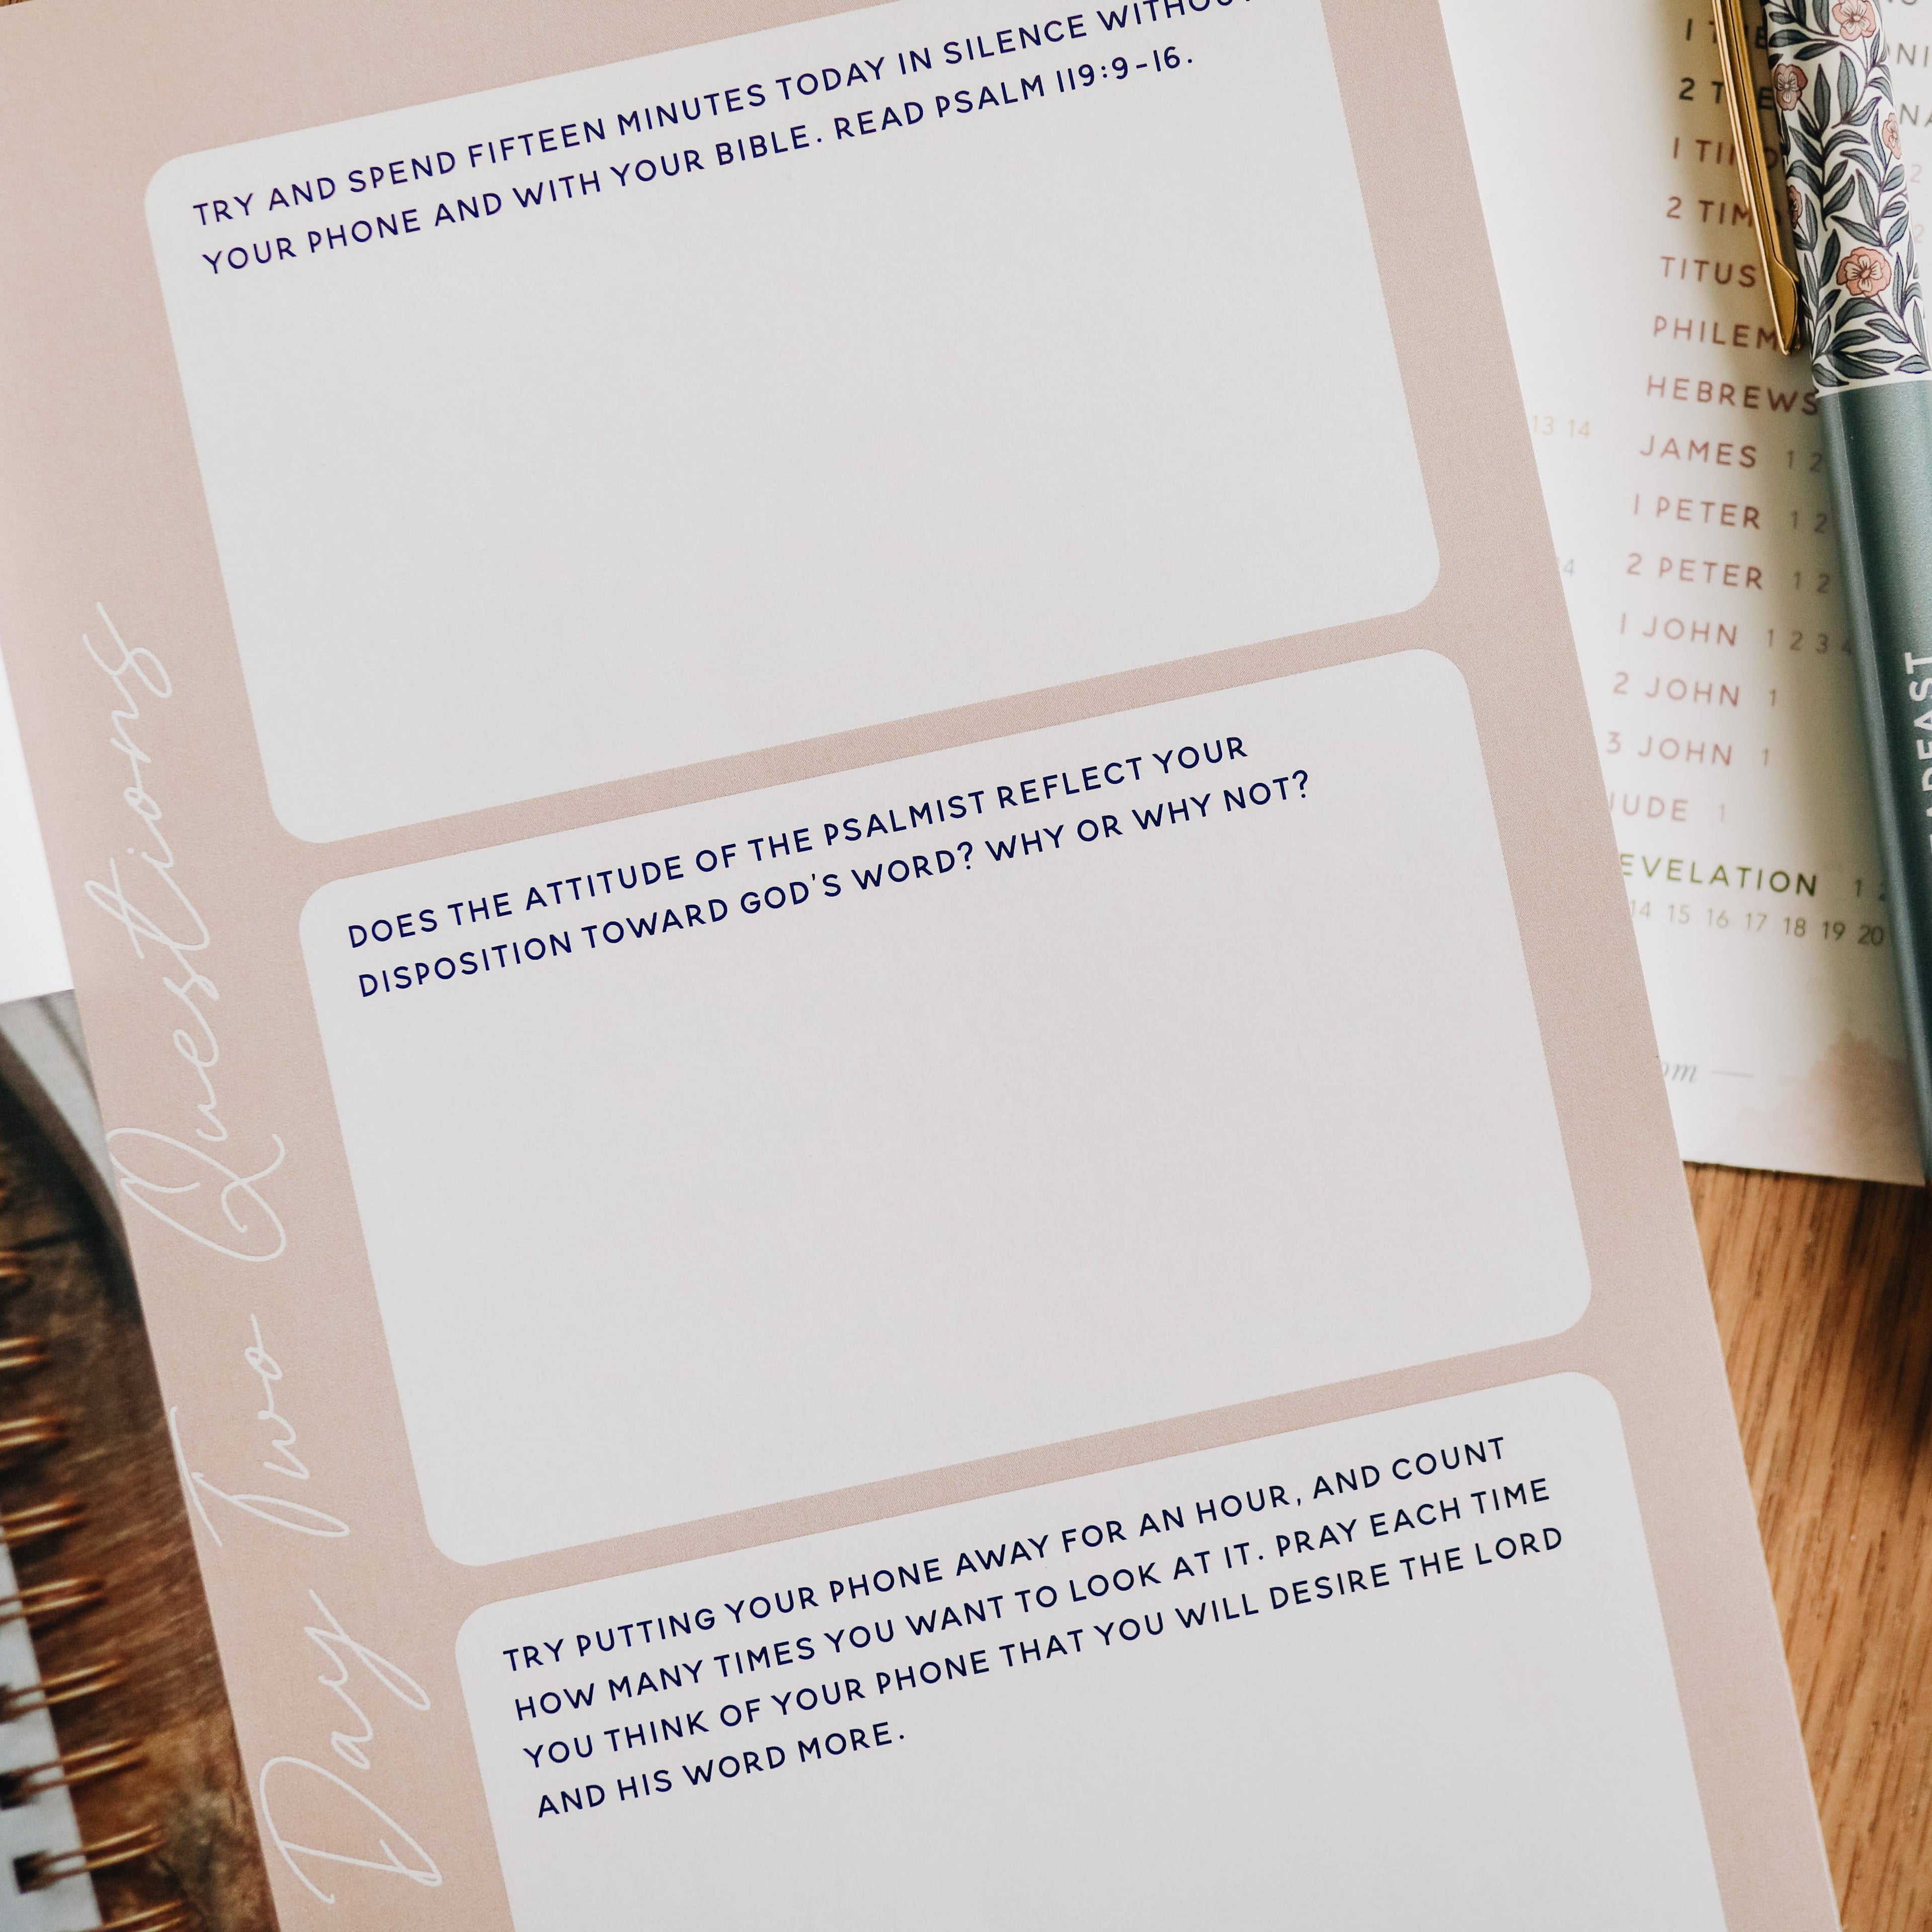 TRY AND SPEND FIFTEEN MINUTES TODAY IN SILENCE
YOUR PHONE AND WITH YOUR BIBLE. READ PSALM 119:9-16.
DOES THE ATTITUDE OF THE PSALMIST REFLECT YOUR
DISPOSITION TOWARD GOD'S WORD? WHY OR WHY NOT?
TRY PUTTING YOUR PHONE AWAY FOR AN HOUR, AND COUNT
HOW MANY TIMES YOU WANT TO LOOK AT IT. PRAY EACH TIME
YOU THINK OF YOUR PHONE THAT YOU WILL DESIRE THE LORD
AND HIS WORD MORE.
Day Two Questions
2 TIM
TITUS
HEBREWS
13 14
JAMES 1 2
1 PETER 1 2
2 PETER 1 2
1 JOHN 1 2 3 4
2 JOHN 1
3 JOHN 1
JUDE 1
1
14 15 16 17 18 19 20